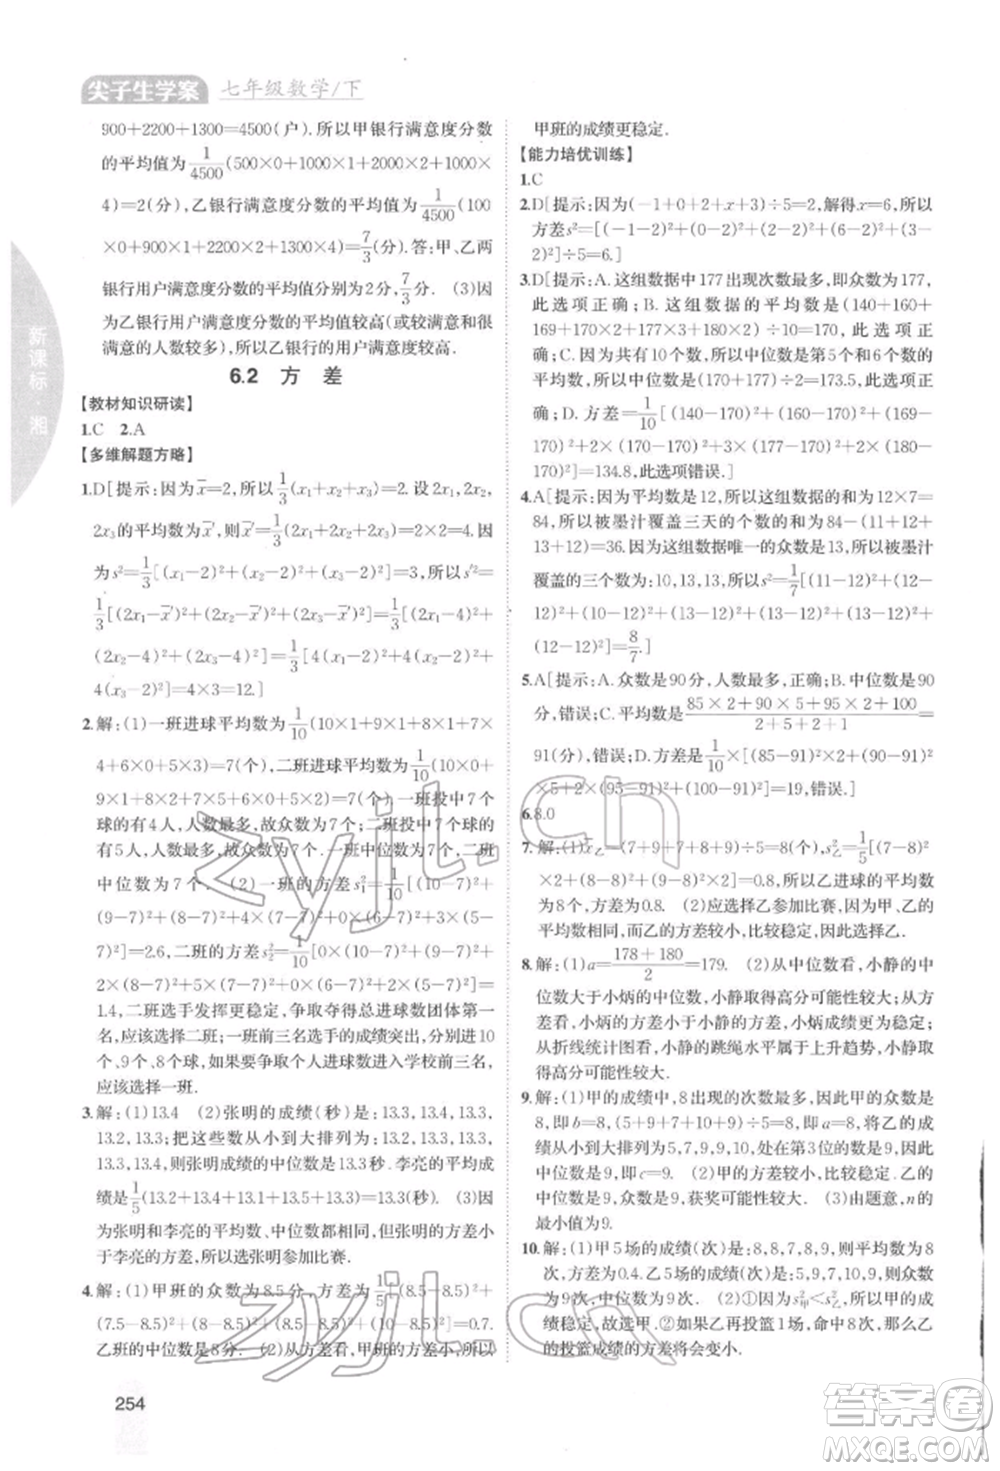 尖子生学案 七年级数学/下
900+2200+1300=4500(户).所以甲银行满意度分数
的平均值为1/4500(500×0+1000×1+2000×2+1000×
4)=2(分),乙银行满意度分数的平均值为1/4500(100
×0+900×1+2200×2+1300×4)=7/3(分).答:甲、乙两
银行用户满意度分数的平均值为2分,7/3分. (3)因
为乙银行用户满意度分数的平均值较高(或较
满意的人数较多),所以乙银行的用户满意度较高.
6.2 方 差
【教材知识研读】
1.C 2.A
【多维解题方略】
1.D[提示:因为x̄=2,所以1/3(x₁+x₂+x₃)=2.设2x₁,2x₂,
2x₃的平均数为x̄′,则x̄′=1/3(2x₁+2x₂+2x₃)=2×2=4.
因为s²=1/3[(x₁-2)²+(x₂-2)²+(x₃-2)²]=3,所以s′²=
1/3[(2x₁-x̄′)²+(2x₂-x̄′)²+(2x₃-x̄′)²]=1/3[(2x₁-4)²+
(2x₂-4)²+(2x₃-4)²]=1/3[4(x₁-2)²+4(x₂-2)²+
4(x₃-2)²]=4×3=12.]
2.解:(1)一班进球平均数为1/10(10×1+9×1+8×1+7×
4+6×0+5×3)=7(个),二班进球平均数为1/10(10×0
+9×1+8×2+7×5+6×0+5×2)=7(个).一班投中7个
的有4人,人数最多,故众数为7个;二班投中7个球
的有5人,人数最多,故众数为7个.一班中位数为7个,二班
中位数为7个. (2)一班的方差s₁²=1/10[(10-7)²+
(9-7)²+(8-7)²+4×(7-7)²+0×(6-7)²+3×(5-
7)²]=2.6,二班的方差s₂²=1/10[0×(10-7)²+1×
(9-7)²+2×(8-7)²+5×(7-7)²+0×(6-7)²+2×(5-7)²]=
1.4,二班选手发挥更稳定,争取夺得总进球数团体第一
名,应该选择二班;一班前三名选手的成绩突出,分别进10个,
9个,8个球,如果要争取个人进球数进入学校前三名,
应该选择一班.
3.解:(1)13.4 (2)张明的成绩(秒)为:13.3,13.4,13.3,
13.2,13.3;把这些数从小到大排列为:13.2,13.3,13.3,
13.3,13.4,则张明成绩的中位数是13.3秒.李亮的平均
成绩是1/5(13.2+13.4+13.1+13.5+13.3)=13.3(秒). (3)因
为张明和李亮的平均数、中位数都相同,但张明的方差小
于李亮的方差,所以选张明参加比赛.
4.解:(1)甲班的众数为8.5分,方差为1/5[(8.5-8.5)²+
(7.5-8.5)²+(8-8.5)²+(8.5-8.5)²+(10-8.5)²]=0.7.
乙班的中位数是8分. (2)从平均数看,两班平均数相同,甲班的方差小,所以
甲班的成绩更稳定.
【能力培优训练】
1.C
2.D[提示:因为(-1+0+2+x+3)÷5=2,解得x=6,所以
方差s²=[(-1-2)²+(0-2)²+(2-2)²+(6-2)²+(3-
2)²]÷5=6.]
3.D[提示:A.这组数据中177出现次数最多,即众数为177,
此选项正确;B.这组数据的平均数是(140+160+
169+170×2+177×3+180×2)÷10=170,此选项正
确;C.因为共有10个数据,中位数为第5个和6个数据的
平均数,所以中位数是(170+177)÷2=173.5,此选项正
确;D.方差=1/10[(140-170)²+(160-170)²+(169-
170)²+2×(170-170)²+3×(177-170)²+2×(180-
170)²]=134.8,此选项错误.]
4.A[提示:因为平均数是12,所以这组数据的和为12×7=
84,所以被墨汁覆盖三天的个数的和为84-(11+12+
13+12)=36.因为这组数据唯一的众数是13,所以被墨汁
覆盖的三个数为:10,13,13,所以s²=1/7[(11-12)²+(12-
12)²+(10-12)²+(13-12)²+(13-12)²+(13-12)²+
(12-12)²]=8/7.]
5.A[提示:A.众数是90分,人数最多,正确;B.中位数是90
分,错误;C.平均数是(85×2+90×5+95×2+100)/(2+5+2+1)=
91(分),错误;D.方差是1/10×[(85-91)²×2+(90-91)²
×5+2×(95-91)²+(100-91)²]=19,错误.]
6.8.0
7.解:(1)x̄乙=(7+9+7+8+9)÷5=8(个),s乙²=1/5[(7-8)²
×2+(8-8)²+(9-8)²×2]=0.8,所以乙进球的平均数为8个,
方差为0.8. (2)选择乙参加比赛,理由:因为甲、乙的
平均数相同,而乙的方差较小,较稳定,因此应选择乙.
8.解:(1)a=(178+180)/2=179. (2)从中位数看,小静的中
位数大于小炳的中位数,小静取得高分可能性较大;从
方差看,小炳的方差小于小静的方差,小炳成绩更为稳定;
从折线统计图看,小静的跳绳水平属于上升趋势,小静取得高分可能性较大.
9.解:(1)甲的成绩中,8出现的次数最多,因此甲的众数是
8,即b=8,(5+9+7+10+9)÷5=8,所以a=8,将乙的
成绩从小到大排列为5,7,9,9,10,处在第3位的数是9,因此中
位数是9,即c=9. (2)甲的方差较小,比较稳定,乙的
中位数是9,众数是9,获奖可能性较大. (3)由题意,n的
最小值为9.
10.解:(1)甲5场的成绩(次)是:8,8,7,8,9,则平均数为8
次,方差为0.4.乙5场的成绩(次)是:5,9,7,10,9,则众数
为9次,中位数为9次. (2)①因为s甲²<s乙²,所以甲的成绩较
稳定,所以选甲.②如果乙再投篮1场,命中8次,那么乙
的投篮成绩的方差将会变小.
新课标·湘
254
zyjl.cn
zyjl.cn
答案圈
MXQE.COM